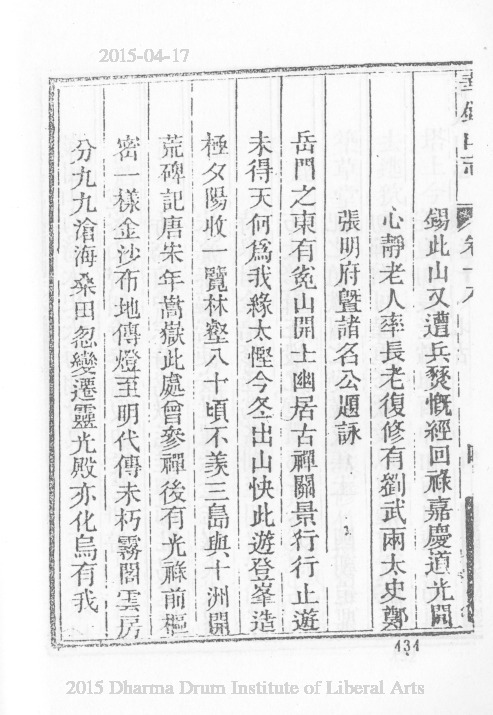 2015-04-17
錫此山又遭兵燹慨經回祿嘉慶道光間
心靜老人率長老復修有劉武兩太史鄭
張明府暨諸名公題詠
岳門之東有兔山開土幽居古禪關景行行止遊
未得天何為我緣太慳今冬出山快此遊登峯造
極夕陽收一覽林壑八十頃不羨三島與十洲開
荒碑記唐朱年嵩嶽此處曾參禪後有光祿前樞
密一樣金沙布地傳燈至明代傳未朽霧閣雲房
分九九滄海桑田忽變遷靈光殿亦化烏有我
434
2015 Dharma Drum Institute of Liberal Arts